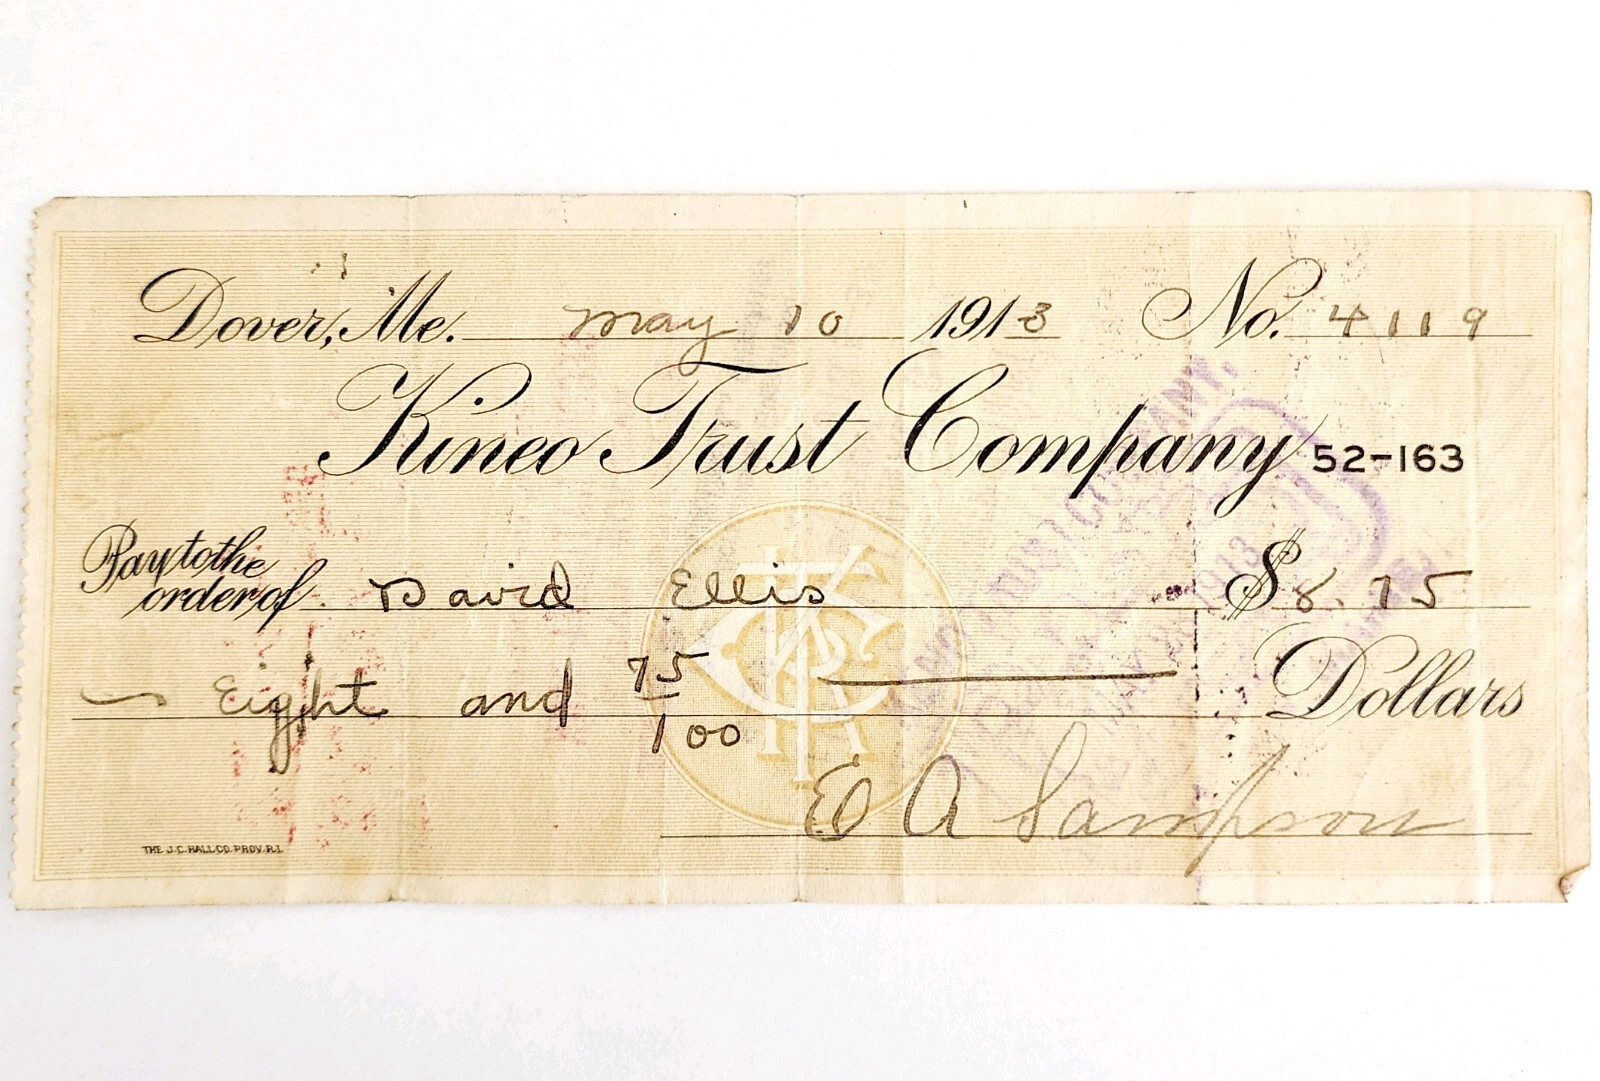 Dover, Me. May 10 1913 No. 4119
Kineo Trust Company 52-163
Pay to the order of David Ellis $ 8.75
Eight and 75/100 Dollars
E A Sampson
THE J.C. HALL CO. PROV. R.I.